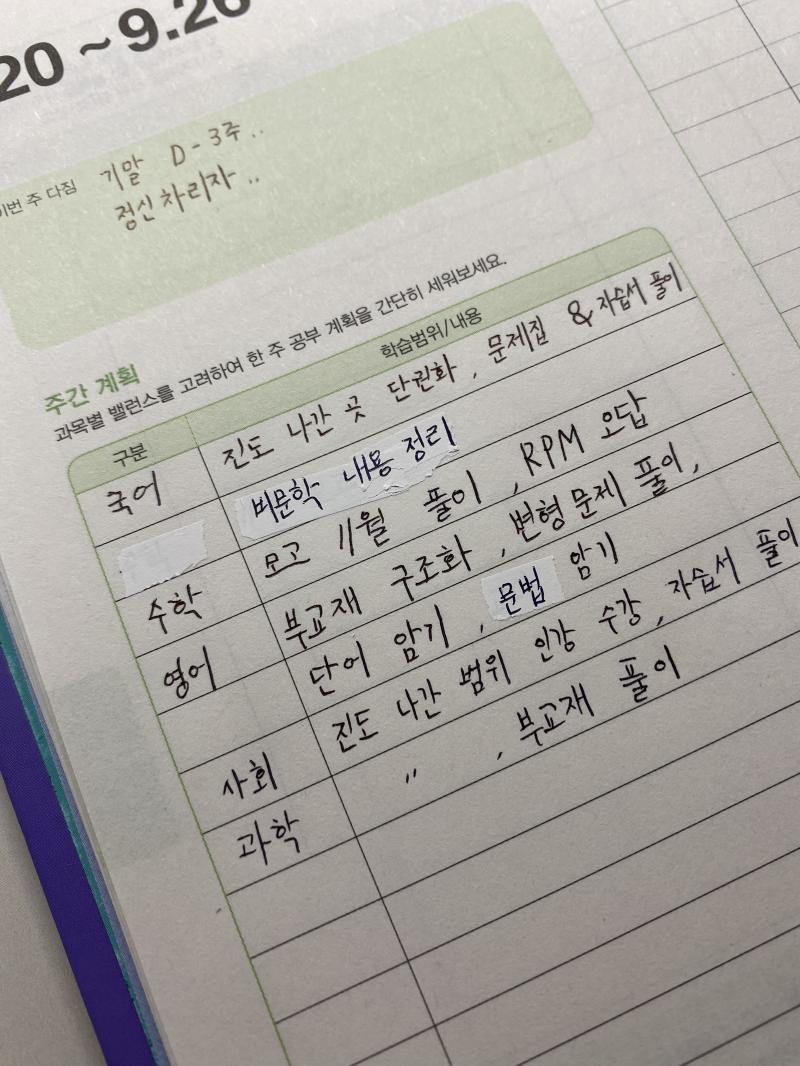 20~9.26
이번 주 다짐 기말 D-3주..
정신차리자..
주간 계획
과목별 밸런스를 고려하여 한 주 공부 계획을 간단히 세워보세요.
구분 학습범위/내용
국어 진도 나간 곳 단권화, 문제집 & 자습서 풀이
비문학 내용 정리
수학 모고 11월 풀이, RPM 오답
영어 부교재 구조화, 변형문제 풀이,
단어 암기, 문법 암기
사회 진도 나간 범위 인강 수강, 자습서 풀이
과학 〃 , 부교재 풀이